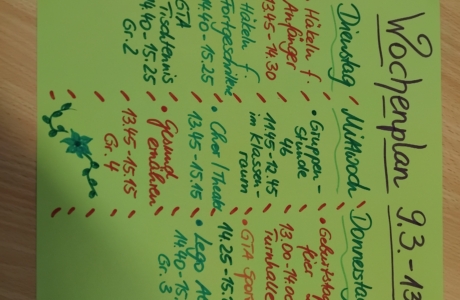 Wochenplan 9.3.-13
Dienstag
Häkeln f.
Anfänger
13.45-14.30
Häkeln f.
Fortgeschrittene
14.40-15.25
GTA
Tischtennis
14.40-15.25
Gr. 2
Mittwoch
• Gruppen-
stunde
4b
11.45-12.45
im Klassen-
raum
• Chor/Theater
13.45-15.15
• Gesund
ernähren
13.45-15.15
Gr. 4
Donnerstag
• Geburtstags
feier
13.00-14.0
Turnhalle
• GTA
14.25-15.
• Lego
14.40-15
Gr. 3